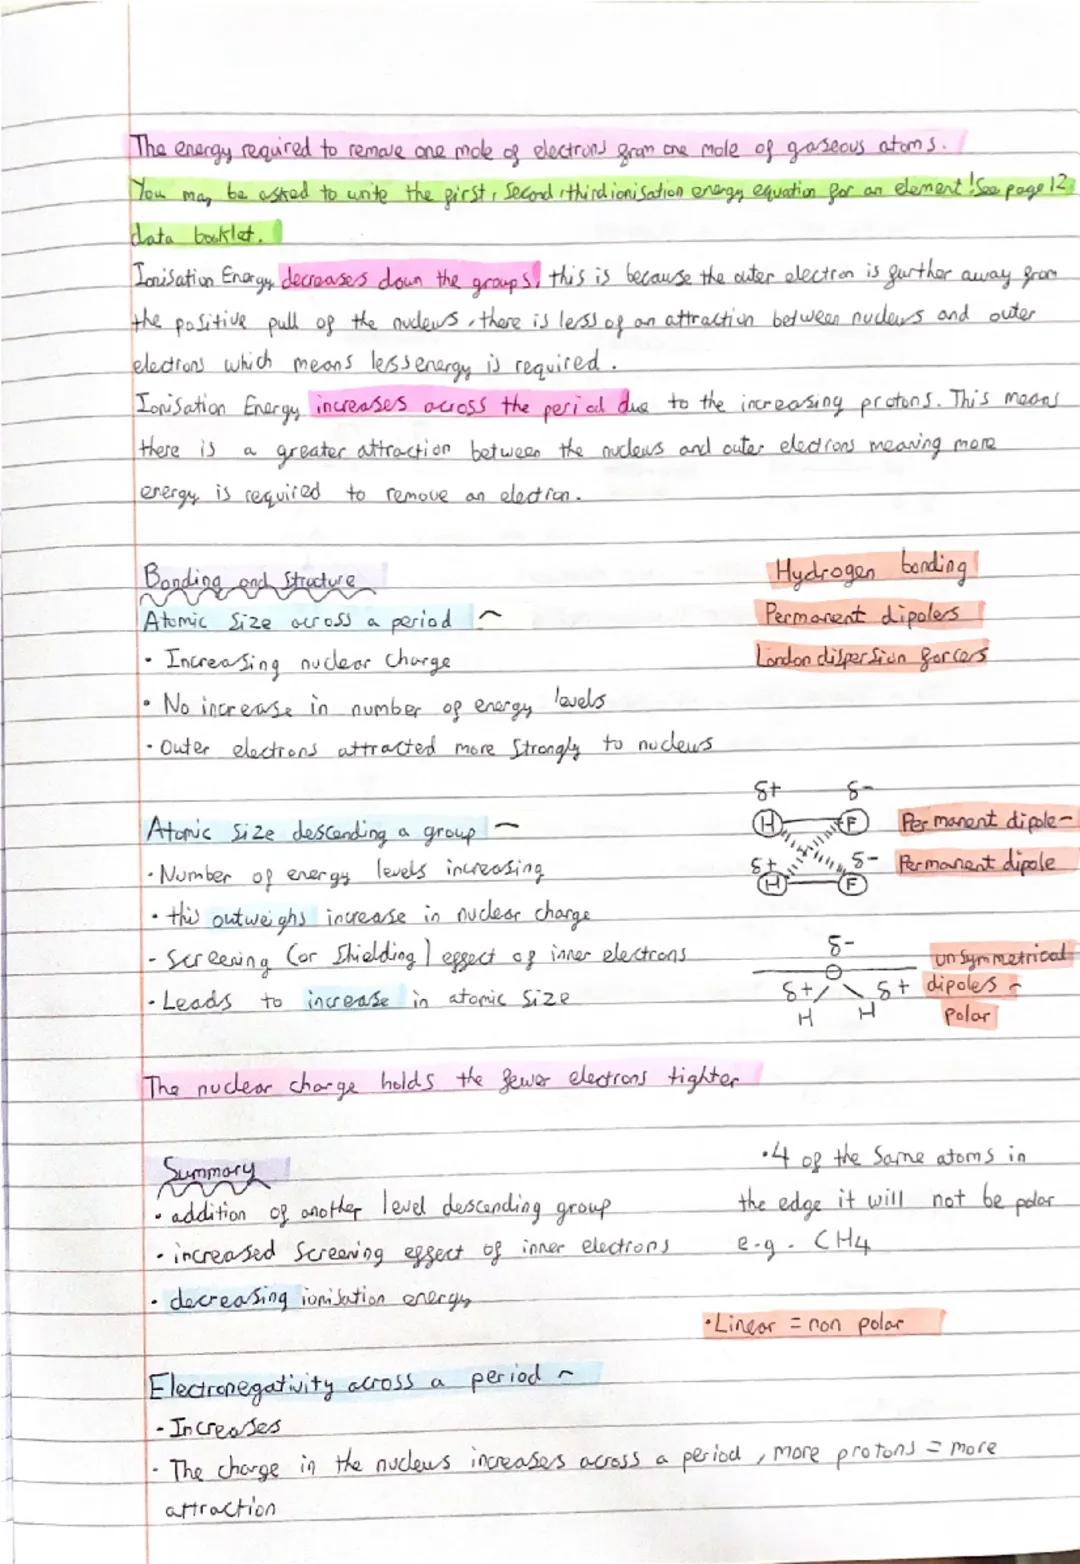 The energy required to remove one mole of electrons from one mole of gaseous atoms.
You may be asked to write the first, second, third ionisation energy equation for an element! See page 12
data booklet.
Ionisation Energy decreases down the groups, this is because the outer electron is further away from
the positive pull of the nucleus, there is less of an attraction between nucleus and outer
electrons which means less energy is required.
Ionisation Energy increases across the period due to the increasing protons. This means
there is a greater attraction between the nucleus and outer electrons meaning more
energy is required to remove an electron.
Bonding and Structure
Atomic Size across a period ~
· Increasing nuclear charge
· No increase in number of energy levels
· Outer electrons attracted more strongly to nucleus
Hydrogen bonding
Permanent dipolers
London dispersion forcers
Atomic size descending a group ~
· Number of energy levels increasing
· this outweighs increase in nuclear charge
- Screening (or Shielding) effect of inner electrons
· Leads to increase in atomic size
δ+ δ-
H F
δ+ δ-
H F
Permanent dipole-
Permanent dipole
δ-
O
δ+ δ+
H H
unsymmetrical
dipolers ~
polar
The nuclear charge holds the fewer electrons tighter
Summary
· addition of another level descending group
· increased screening effect of inner electrons
· decreasing ionisation energy
·4 of the same atoms in
the edge it will not be polar
e.g. CH4
· Linear = non polar
Electronegativity across a period ~
- Increases
· The charge in the nucleus increases across a period, more protons = more
attraction